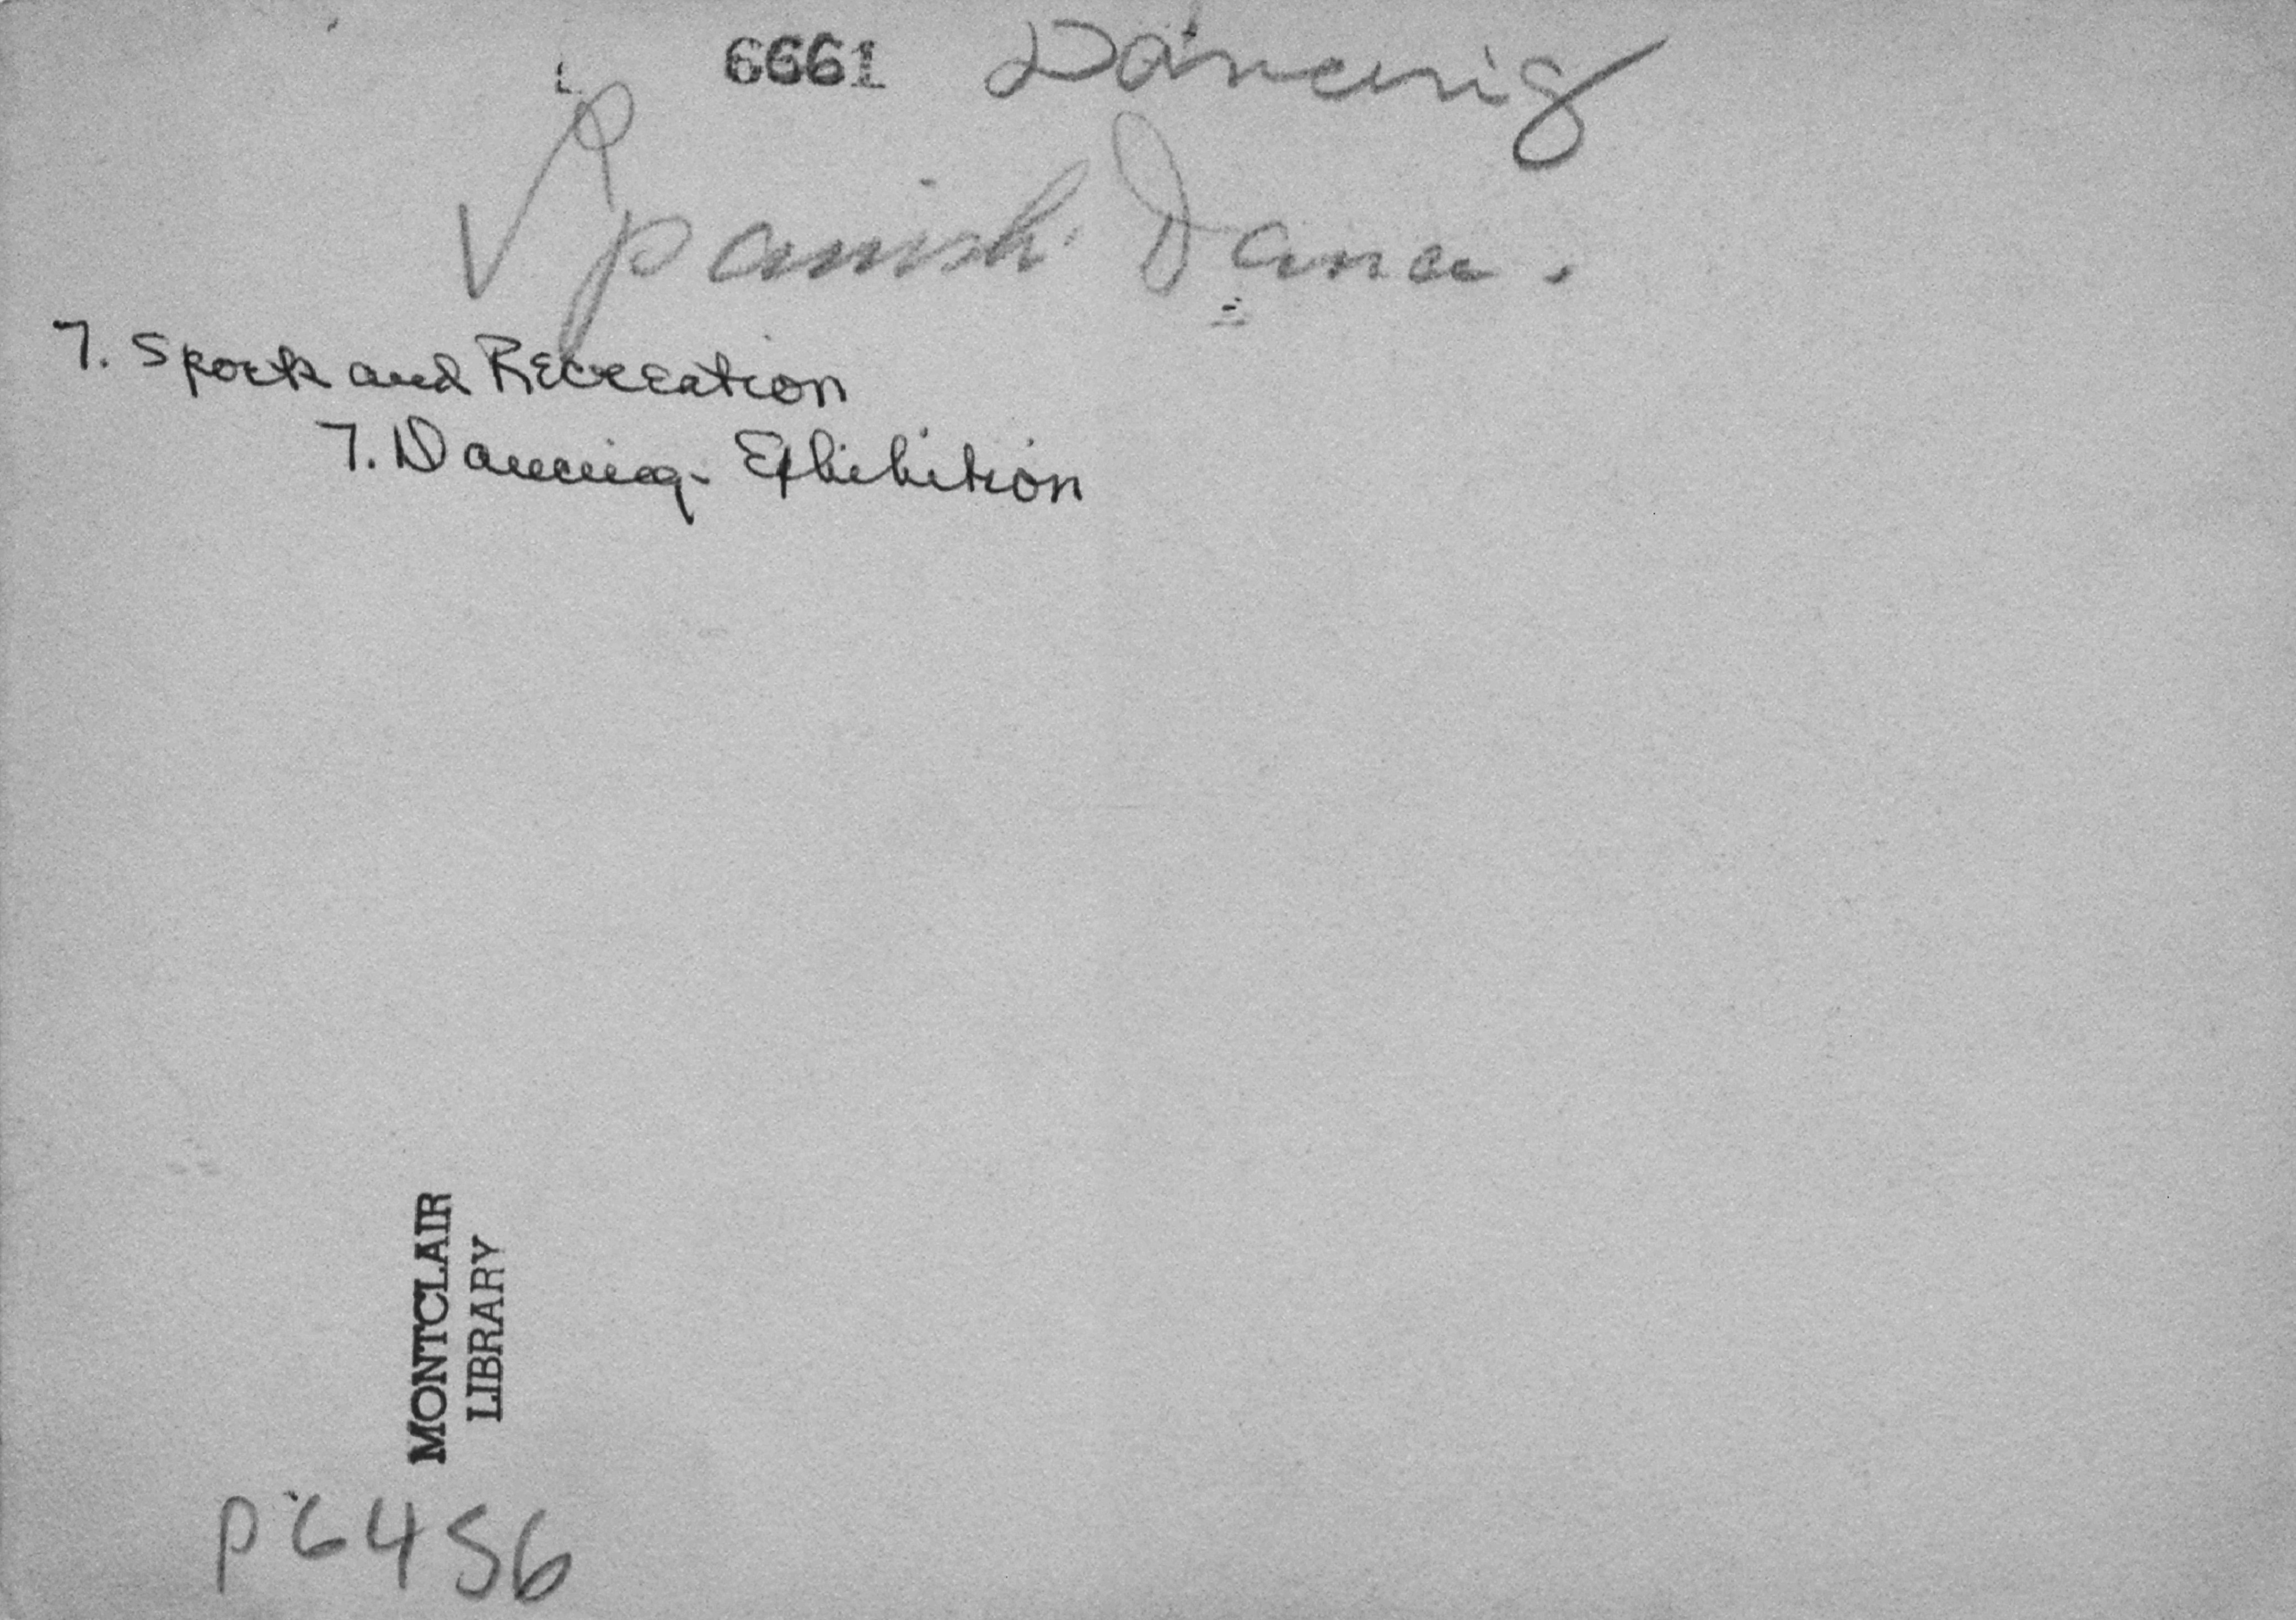 6661 Dancing
Spanish Dance.
7. Sports and Recreation
7. Dancing - Exhibition
MONTCLAIR
LIBRARY
P6456